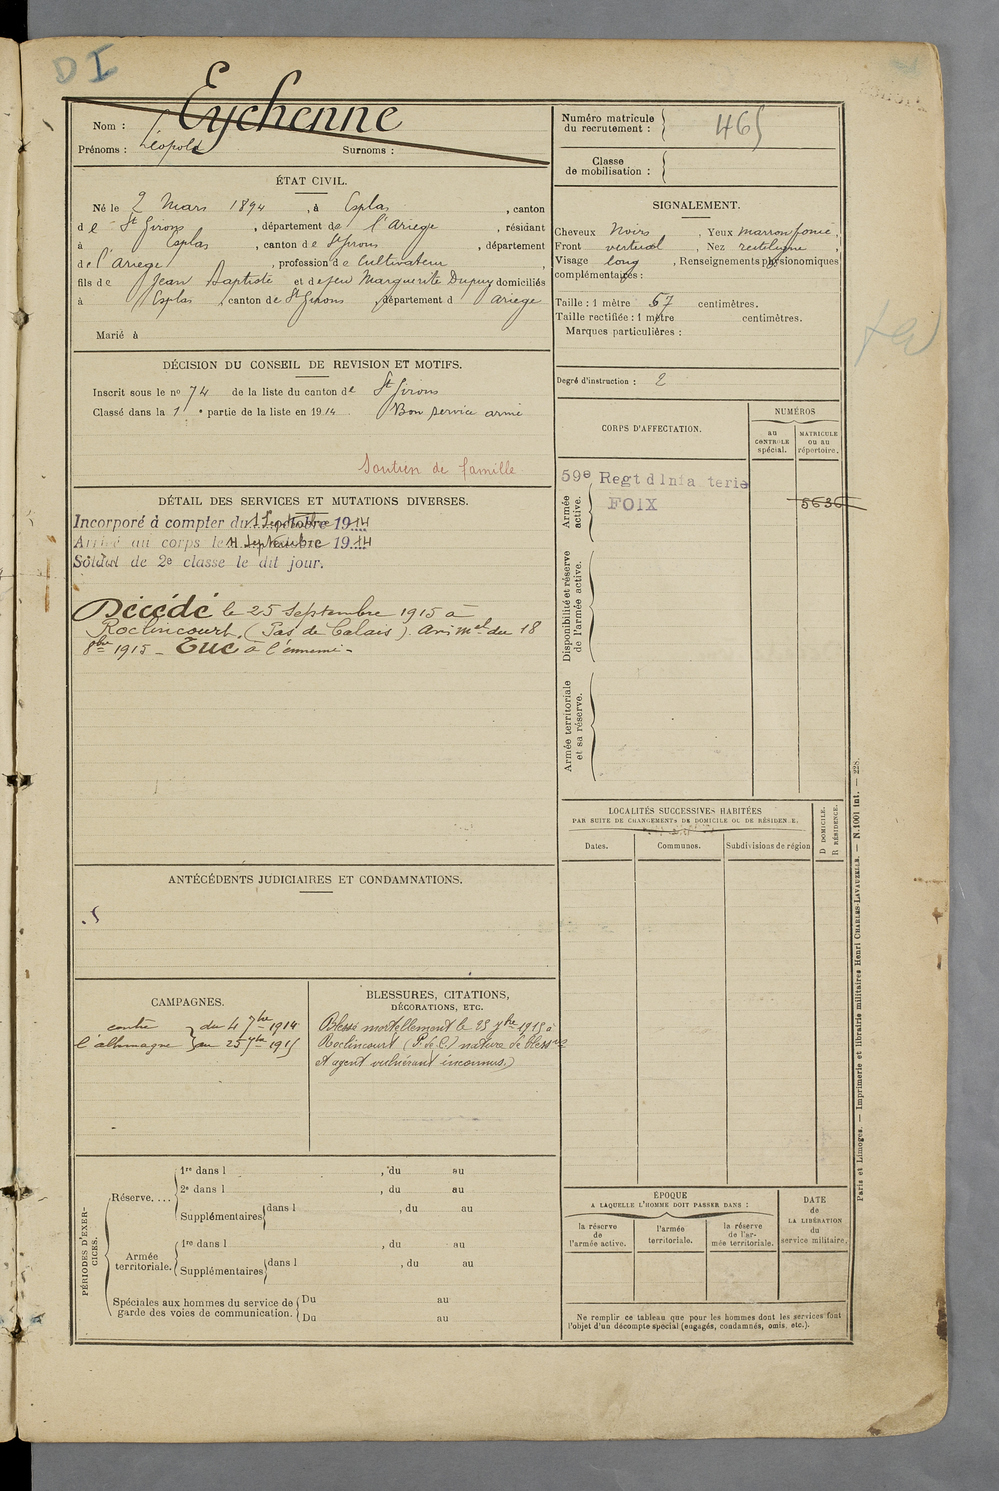 D I
Nom : Eychenne
Prénoms : Léopold Surnoms :
ÉTAT CIVIL.
Né le 2 Mars 1894, à Esplas, canton
de St Girons, département de l'Ariège, résidant
à Esplas, canton de St Girons, département
de l'Ariège, profession de Cultivateur,
fils de Jean Baptiste et de feu Marguerite Dupuy domiciliés
à Esplas, canton de St Girons, département d Ariège
Marié à
DÉCISION DU CONSEIL DE REVISION ET MOTIFS.
Inscrit sous le no 74 de la liste du canton de St Girons
Classé dans la 1e partie de la liste en 1914. Bon service armé
Soutien de famille
DÉTAIL DES SERVICES ET MUTATIONS DIVERSES.
Incorporé à compter du 1 Septembre 1914
Arrivé au corps le 4 Septembre 1914
Soldat de 2e classe le dit jour.
Décédé le 25 Septembre 1915 à
Roclincourt. (Pas de Calais). Avis mel du 18
8bre 1915 - Tué à l'ennemi -
ANTÉCÉDENTS JUDICIAIRES ET CONDAMNATIONS.
CAMPAGNES.
contre l'allemagne } du 4 7bre 1914
au 25 7bre 1915
BLESSURES, CITATIONS,
DÉCORATIONS, ETC.
Blessé mortellement le 25 7bre 1915 à
Roclincourt (P. de C.) nature de bless res
et agent vulnérant inconnus.)
PÉRIODES D'EXERCICES.
Réserve....
1re dans l , du au
2e dans l , du au
Supplémentaires dans l , du au
Armée territoriale.
1re dans l , du au
Supplémentaires dans l , du au
Spéciales aux hommes du service de garde des voies de communication.
Du au
Du au
Numéro matricule
du recrutement : 465
Classe
de mobilisation :
SIGNALEMENT.
Cheveux Noirs, Yeux marron foncé,
Front vertical, Nez rectiligne,
Visage long, Renseignements physionomiques
complémentaires :
Taille : 1 mètre 57 centimètres.
Taille rectifiée : 1 mètre centimètres.
Marques particulières :
Degré d'instruction : 2
CORPS D'AFFECTATION.
NUMÉROS
au CONTRÔLE spécial.
MATRICULE ou au répertoire.
Armée active.
59e Regt d Infanterie
FOIX
5636
Disponibilité et réserve de l'armée active.
Armée territoriale et sa réserve.
LOCALITÉS SUCCESSIVES HABITÉES
PAR SUITE DE CHANGEMENTS DE DOMICILE OU DE RÉSIDENCE.
D DOMICILE.
R RÉSIDENCE.
Dates. Communes. Subdivisions de région
ÉPOQUE
A LAQUELLE L'HOMME DOIT PASSER DANS :
la réserve de l'armée active.
l'armée territoriale.
la réserve de l'armée territoriale.
DATE de LA LIBÉRATION du service militaire.
Ne remplir ce tableau que pour les hommes dont les services font
l'objet d'un décompte spécial (engagés, condamnés, omis, etc.).
Paris et Limoges. — Imprimerie et librairie militaires Henri CHARLES-LAVAUZELLE. — N. 1001 int. — 228.